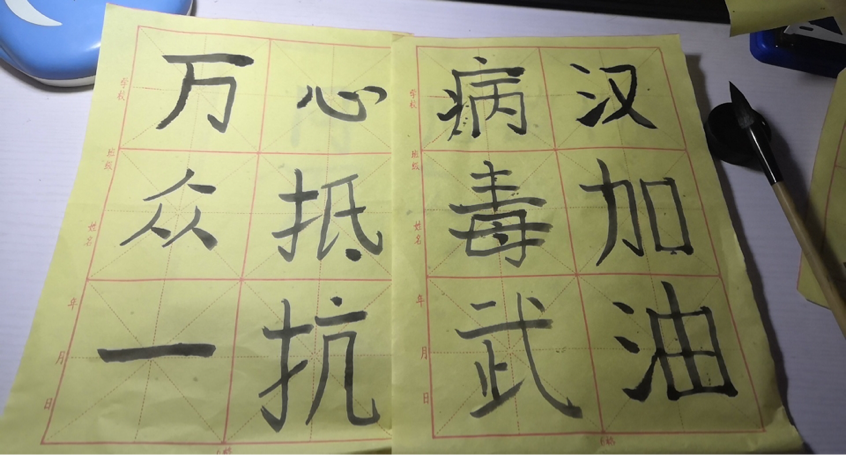 万众一
心抵抗
病毒武
汉加油
学校
班级
姓名
年
月
日
学校
班级
姓名
年
月
日